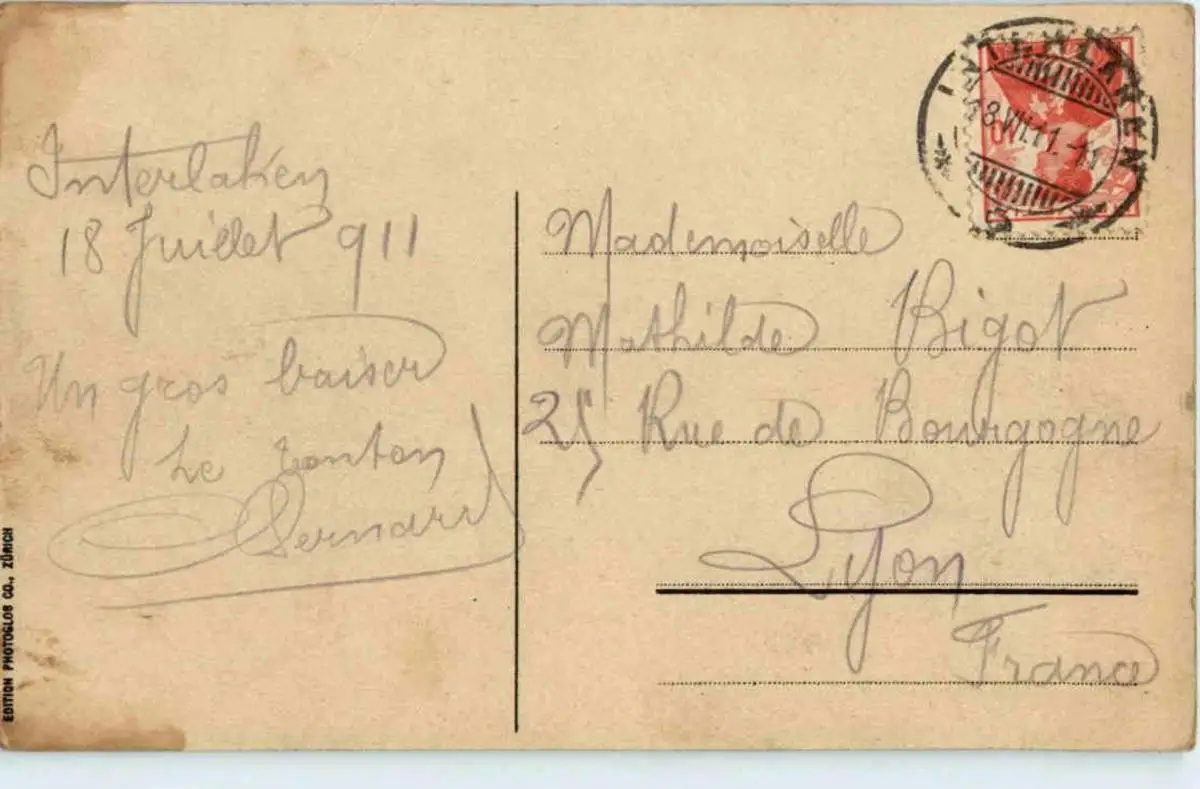 Interlaken
18 Juillet 911
Un gros baiser
Le tonton
Bernard
EDITION PHOTOGLOB CO., ZÜRICH
INTERLAKEN
18.VII.11.-11
Mademoiselle
Mathilde Bigot
25 Rue de Bourgogne
Lyon
France